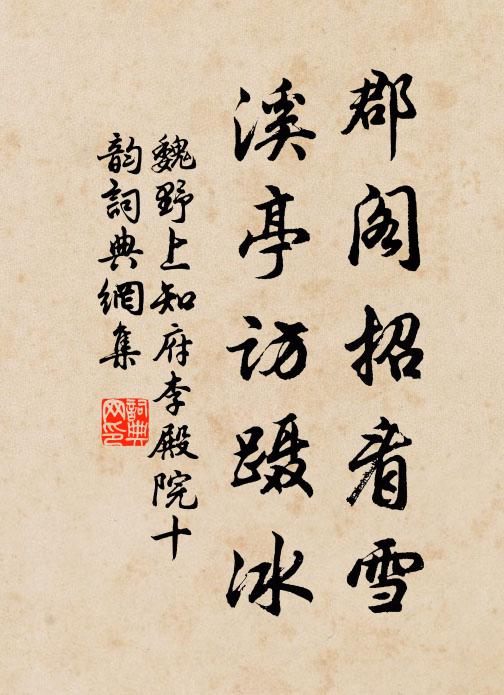 郡阁招看雪
溪亭访蹑冰
魏野上知府李殿院十
韵詞典網集
詞典
网印